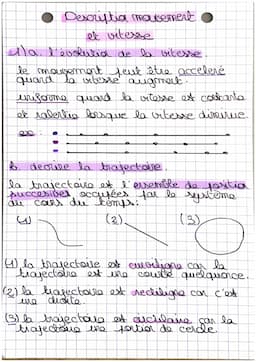 Description mouvement
et vitesse
1) a. l'évolution de la vitesse.
le mouvement peut être acceleré
quand la vitesse augmet.
uniforme quand la vitesse est constante
et ralentie lorsque la vitesse diminue.
ex:
b. decrire la trajectoire.
la trajectoire est l'ensemble de position
successives occupées par le système
au cours du temps:
(1) (2) (3)
(1) la trajectoire est curviligne car la
trajectoire est une courbe quelquonque.
(2) la trajectoire est rectiligne car c'est
une droite.
(3) la trajectoire est circulaire car la
trajectoire une portion de cercle.